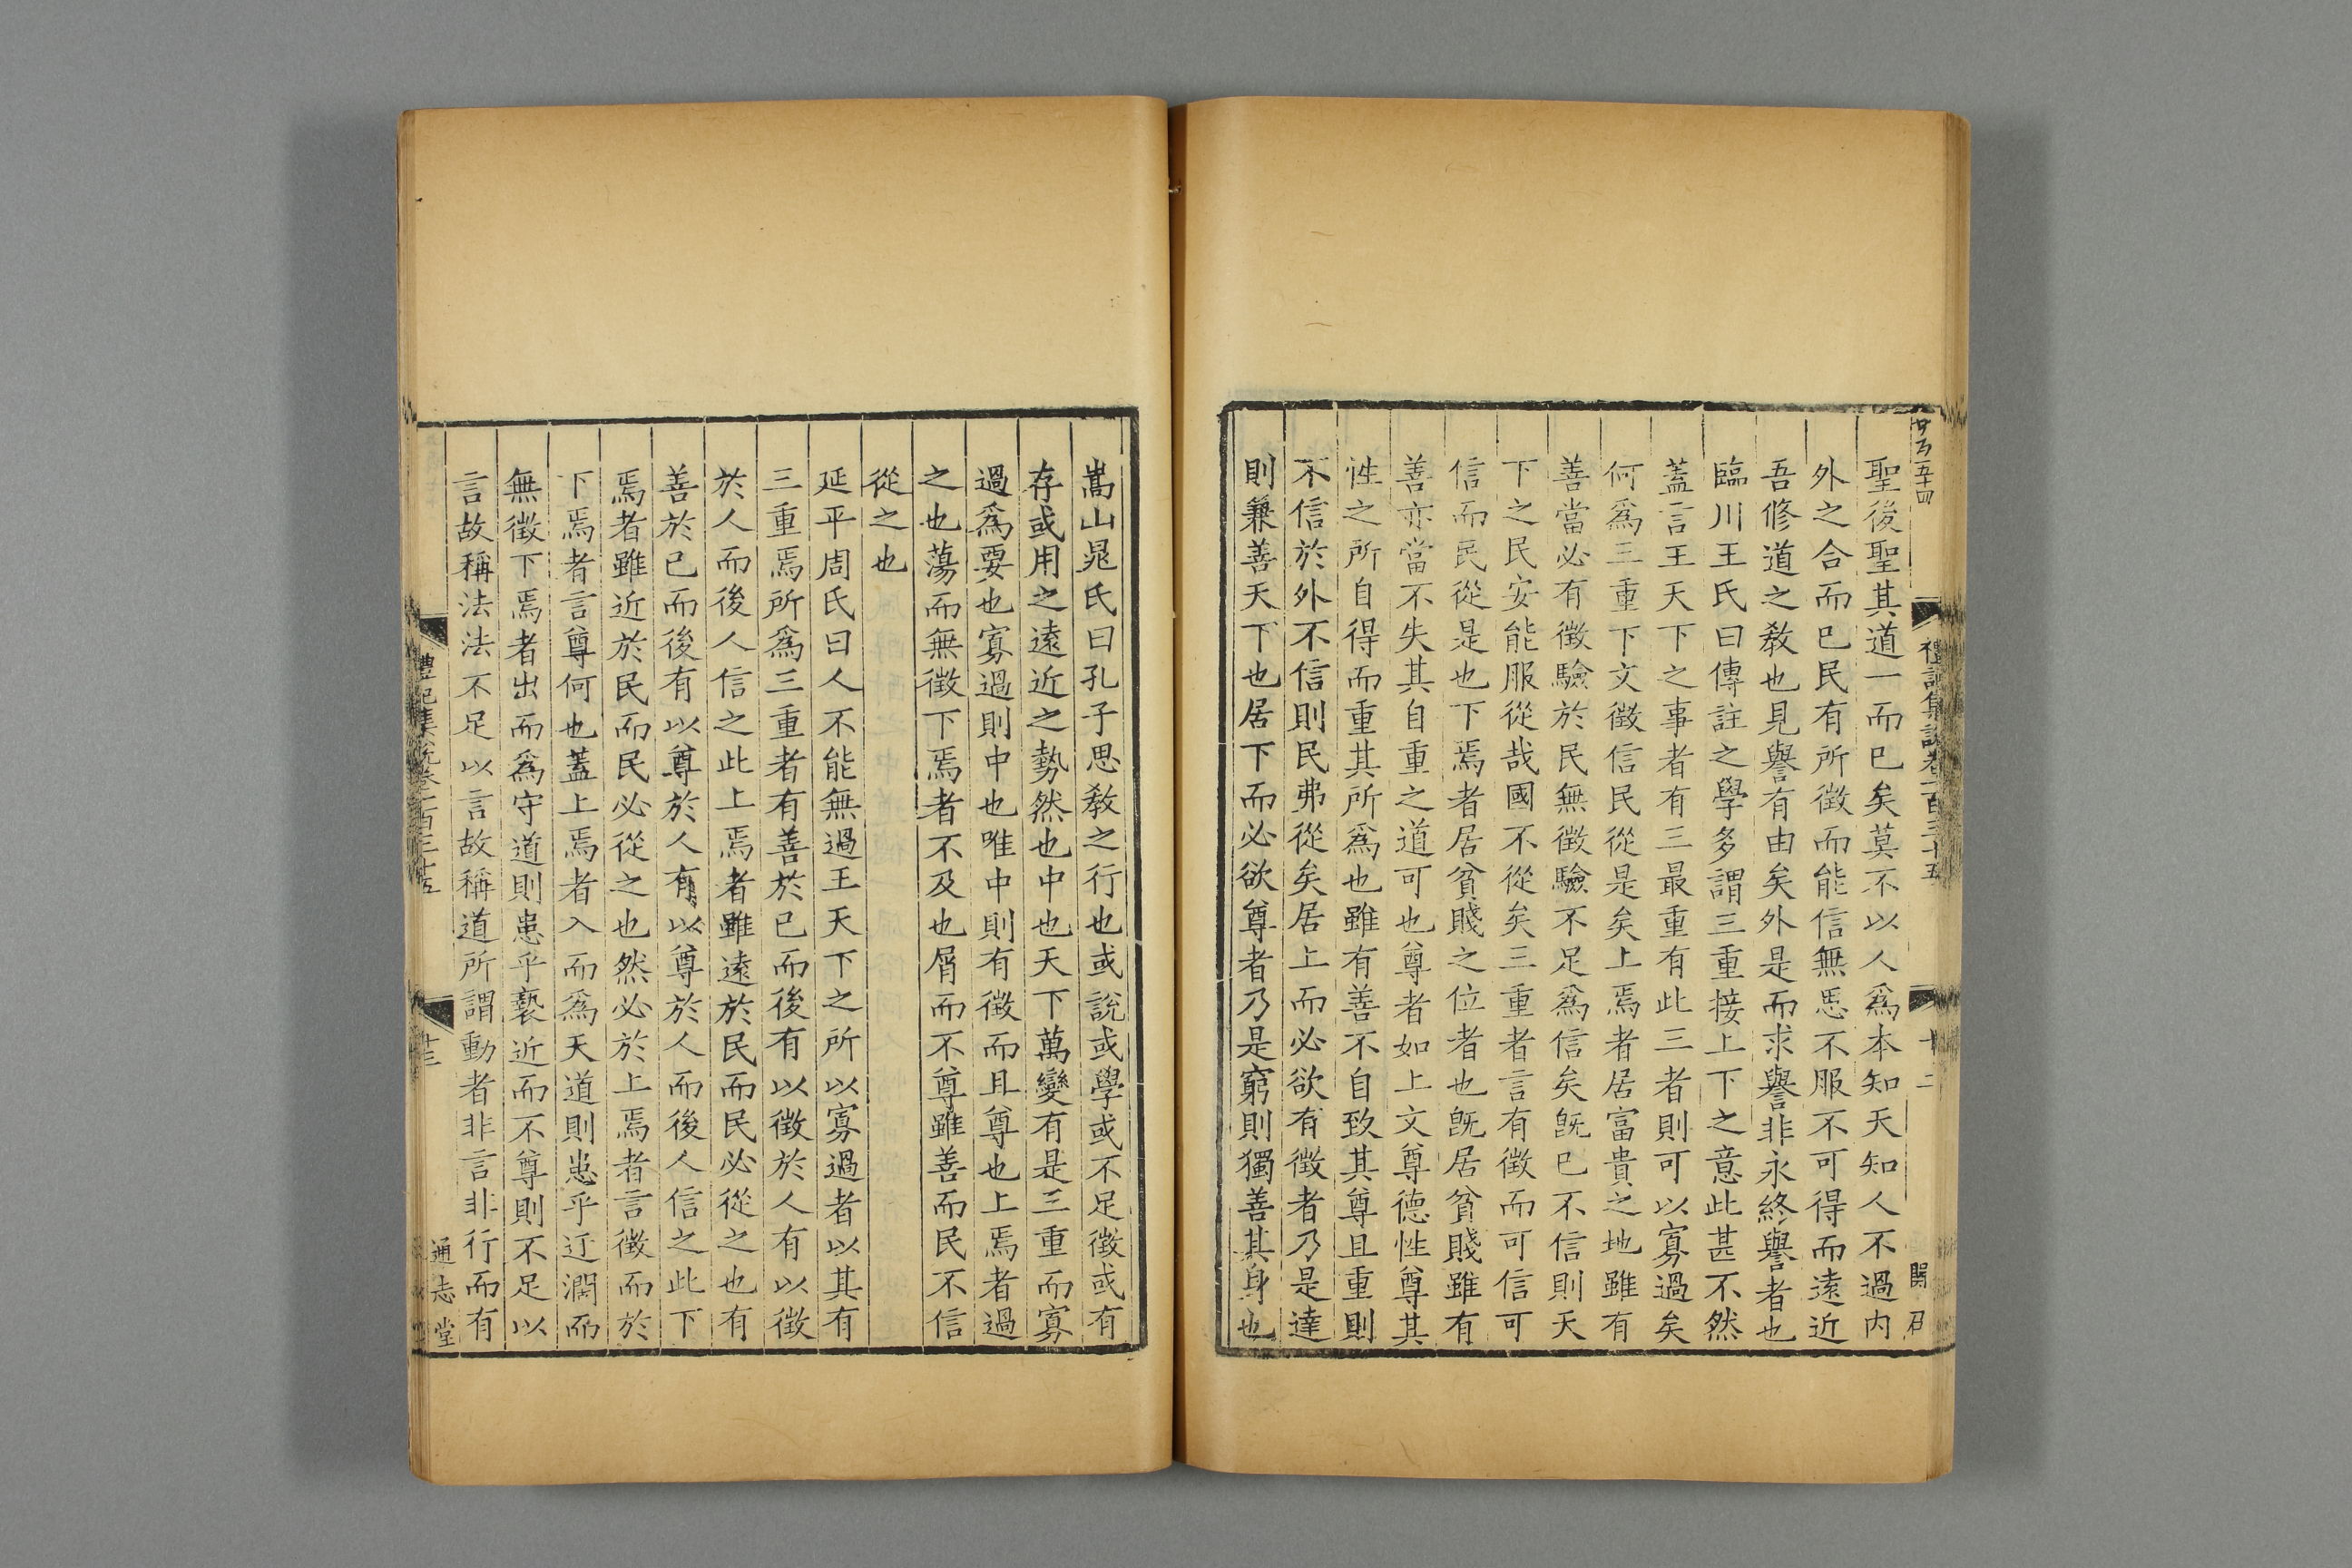 聖後聖其道一而已矣莫不以人爲本知天知人不過內
外之合而已民有所徵而能信無思不服不可得而遠近
吾修道之敎也見譽有由矣外是而求譽非永終譽者也
臨川王氏曰傳註之學多謂三重接上下之意此甚不然
蓋言王天下之事者有三最重有此三者則可以寡過矣
何爲三重下文徵信民從是矣上焉者居富貴之地雖有
善當必有徵驗於民無徵驗不足爲信矣旣已不信則天
下之民安能服從哉國不從矣三重者言有徵而可信可
信而民從是也下焉者居貧賤之位者也旣居貧賤雖有
善亦當不失其自重之道可也尊者如上文尊德性尊其
性之所自得而重其所爲也雖有善不自致其尊且重則
不信於外不信則民弗從矣居上而必欲有徵者乃是達
則兼善天下也居下而必欲尊者乃是窮則獨善其身也
嵩山晁氏曰孔子思敎之行也或說或學或不足徵或有
存或用之遠近之勢然也中也天下萬變有是三重而寡
過爲要也寡過則中也唯中則有徵而且尊也上焉者過
之也蕩而無徵下焉者不及也屑而不尊雖善而民不信
從之也
延平周氏曰人不能無過王天下之所以寡過者以其有
三重焉所爲三重者有善於已而後有以徵於人有以徵
於人而後人信之此上焉者雖遠於民而民必從之也有
善於已而後有以尊於人有以尊於人而後人信之此下
焉者雖近於民而民必從之也然必於上焉者言徵而於
下焉者言尊何也蓋上焉者入而爲天道則患乎迂濶而
無徵下焉者出而爲守道則患乎褻近而不尊則不足以
言故稱法法不足以言故稱道所謂動者非言非行而有
禮記集說卷一百三十五
廿三
通志堂